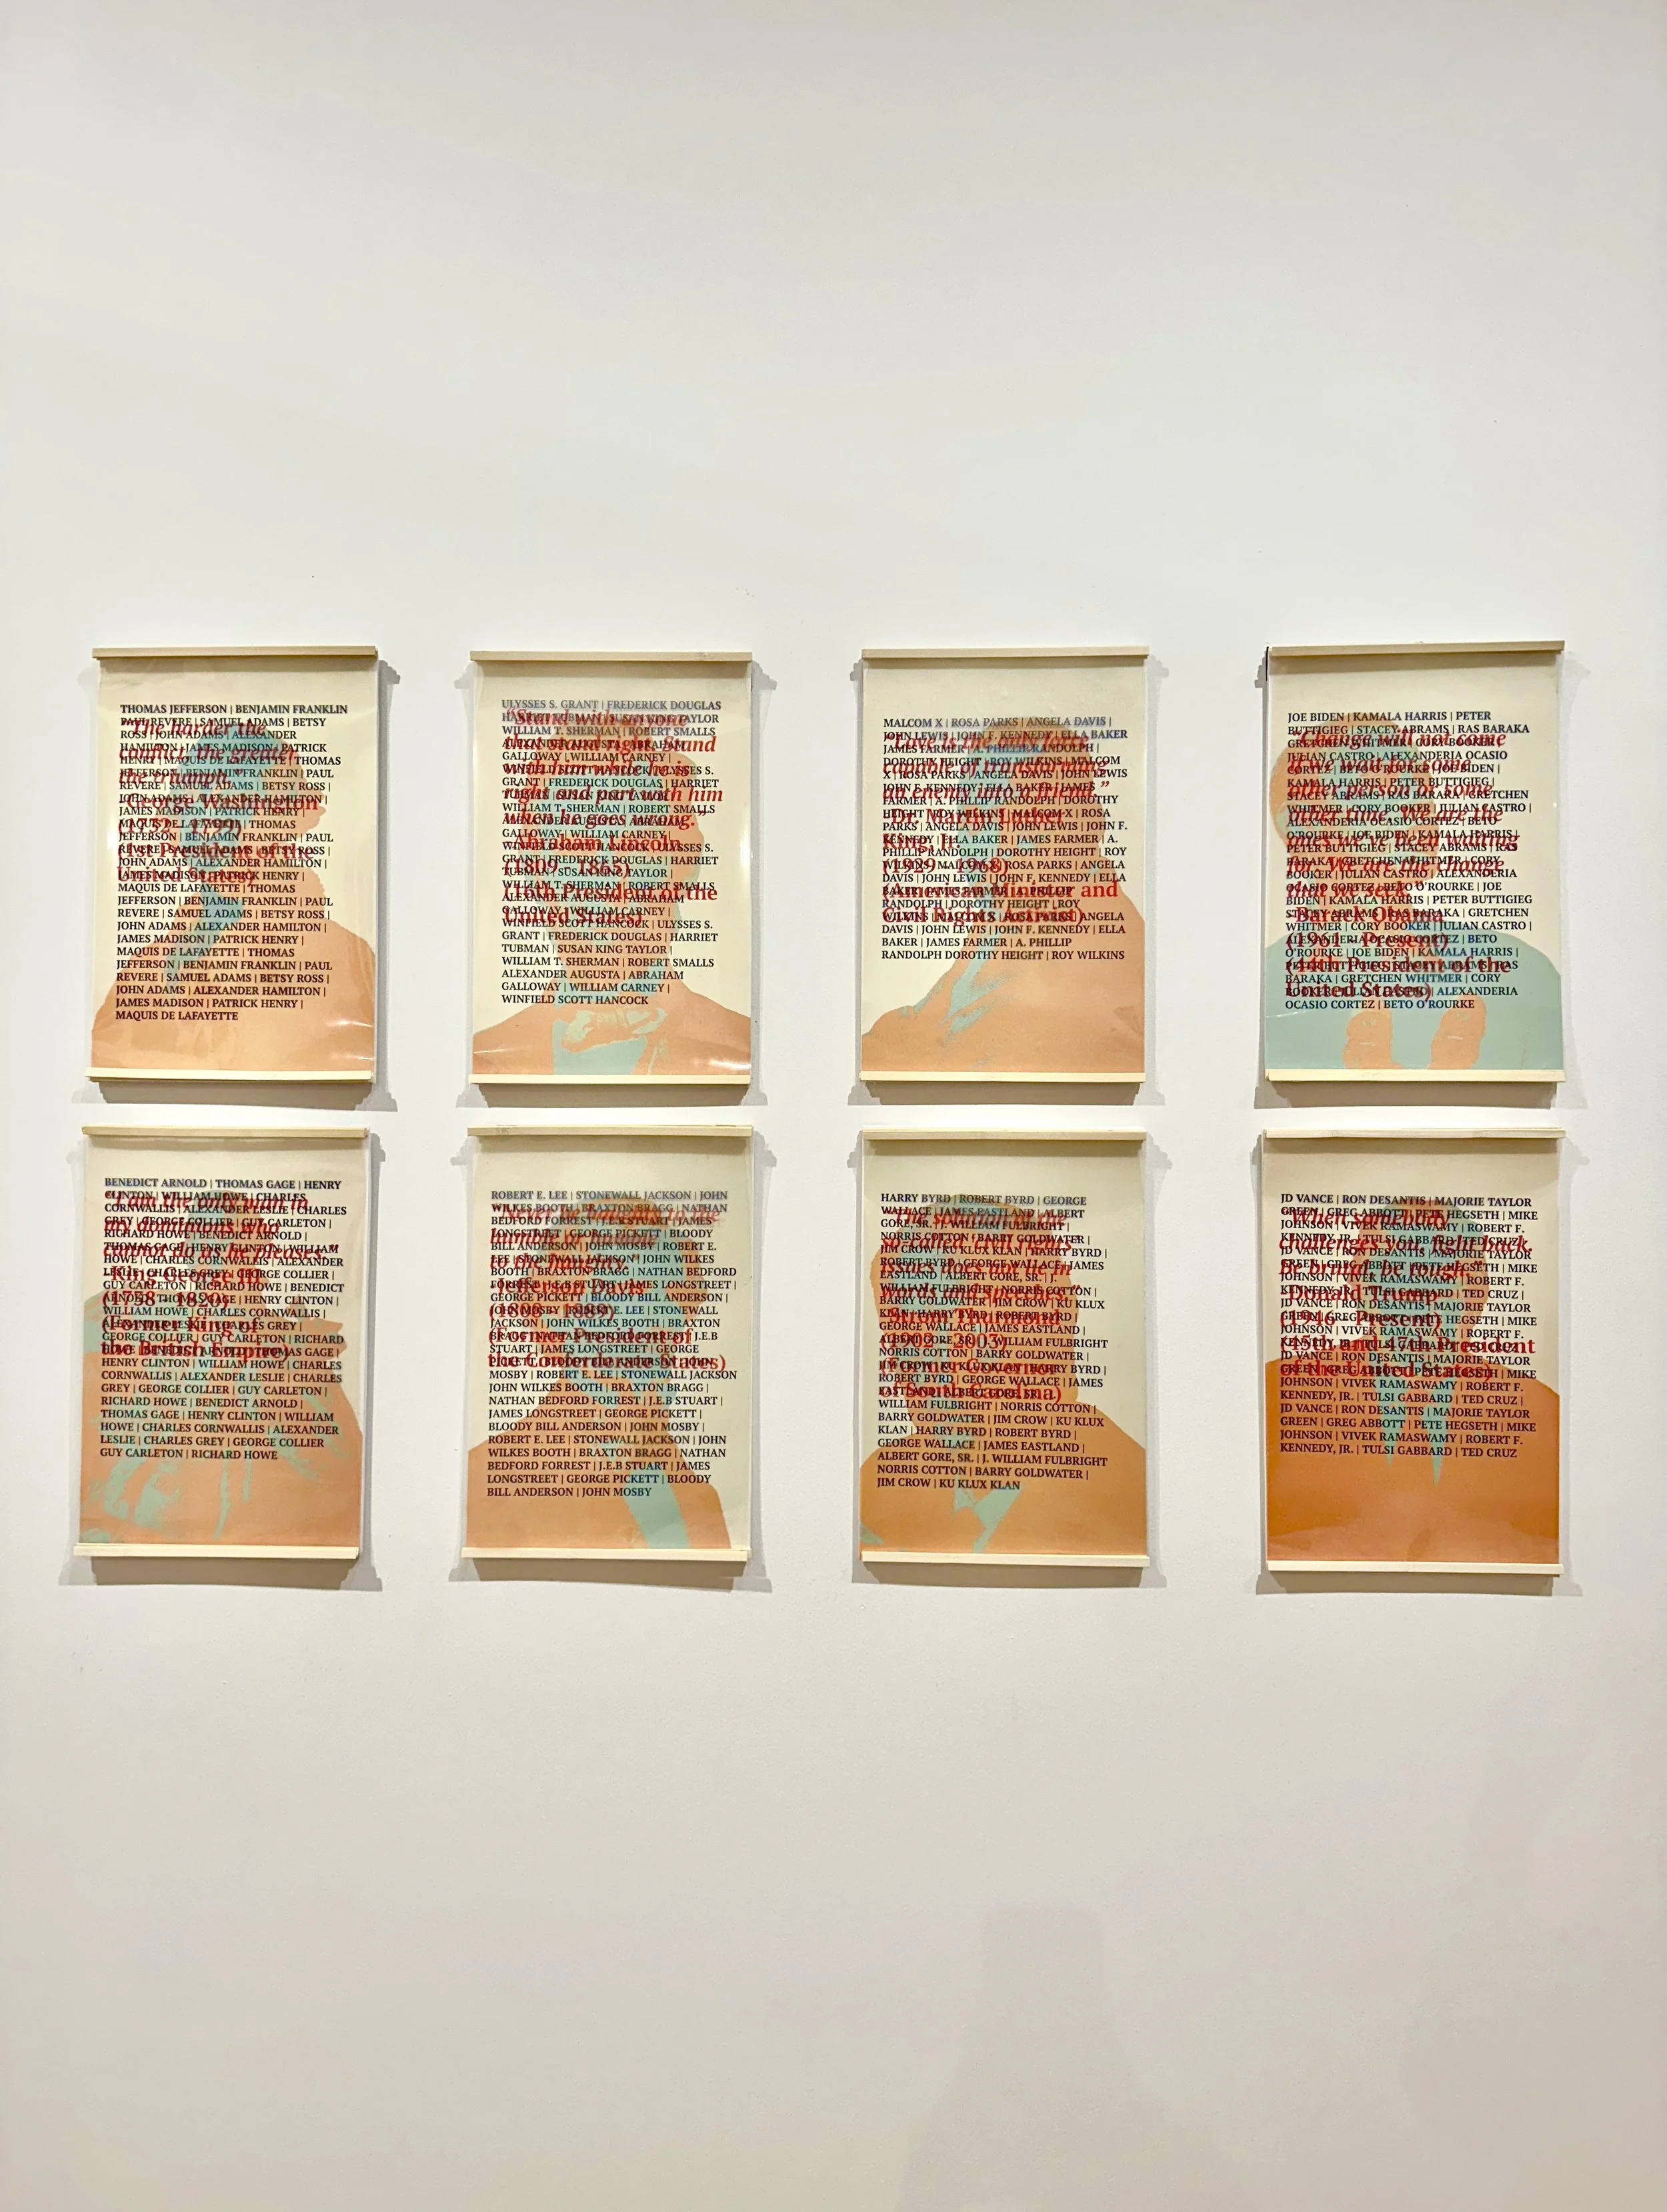 THOMAS JEFFERSON | BENJAMIN FRANKLIN
PAUL REVERE | SAMUEL ADAMS | BETSY
ROSS | JOHN ADAMS | ALEXANDER
HAMILTON | JAMES MADISON | PATRICK
HENRY | MAQUIS DE LAFAYETTE | THOMAS
JEFFERSON | BENJAMIN FRANKLIN | PAUL
REVERE | SAMUEL ADAMS | BETSY ROSS |
JOHN ADAMS | ALEXANDER HAMILTON |
JAMES MADISON | PATRICK HENRY |
MAQUIS DE LAFAYETTE | THOMAS
JEFFERSON | BENJAMIN FRANKLIN | PAUL
REVERE | SAMUEL ADAMS | BETSY ROSS |
JOHN ADAMS | ALEXANDER HAMILTON |
JAMES MADISON | PATRICK HENRY |
MAQUIS DE LAFAYETTE | THOMAS
JEFFERSON | BENJAMIN FRANKLIN | PAUL
REVERE | SAMUEL ADAMS | BETSY ROSS |
JOHN ADAMS | ALEXANDER HAMILTON |
JAMES MADISON | PATRICK HENRY |
MAQUIS DE LAFAYETTE | THOMAS
JEFFERSON | BENJAMIN FRANKLIN | PAUL
REVERE | SAMUEL ADAMS | BETSY ROSS |
JOHN ADAMS | ALEXANDER HAMILTON |
JAMES MADISON | PATRICK HENRY |
MAQUIS DE LAFAYETTE
"The harder the
conflict, the greater
the triumph."
George Washington
(1732 - 1799)
(1st President of the
United States)
ULYSSES S. GRANT | FREDERICK DOUGLAS
HARRIET TUBMAN | SUSAN KING TAYLOR
WILLIAM T. SHERMAN | ROBERT SMALLS
ALEXANDER AUGUSTA | ABRAHAM
GALLOWAY | WILLIAM CARNEY |
WINFIELD SCOTT HANCOCK | ULYSSES S.
GRANT | FREDERICK DOUGLAS | HARRIET
TUBMAN | SUSAN KING TAYLOR |
WILLIAM T. SHERMAN | ROBERT SMALLS
ALEXANDER AUGUSTA | ABRAHAM
GALLOWAY | WILLIAM CARNEY |
WINFIELD SCOTT HANCOCK | ULYSSES S.
GRANT | FREDERICK DOUGLAS | HARRIET
TUBMAN | SUSAN KING TAYLOR |
WILLIAM T. SHERMAN | ROBERT SMALLS
ALEXANDER AUGUSTA | ABRAHAM
GALLOWAY | WILLIAM CARNEY |
WINFIELD SCOTT HANCOCK | ULYSSES S.
GRANT | FREDERICK DOUGLAS | HARRIET
TUBMAN | SUSAN KING TAYLOR |
WILLIAM T. SHERMAN | ROBERT SMALLS
ALEXANDER AUGUSTA | ABRAHAM
GALLOWAY | WILLIAM CARNEY |
WINFIELD SCOTT HANCOCK
"Stand with anyone
that stands right. Stand
with him while he is
right and part with him
when he goes wrong."
Abraham Lincoln
(1809 - 1865)
(16th President of the
United States)
MALCOM X | ROSA PARKS | ANGELA DAVIS |
JOHN LEWIS | JOHN F. KENNEDY | ELLA BAKER
JAMES FARMER | A. PHILLIP RANDOLPH |
DOROTHY HEIGHT | ROY WILKINS | MALCOM
X | ROSA PARKS | ANGELA DAVIS | JOHN LEWIS
JOHN F. KENNEDY | ELLA BAKER | JAMES
FARMER | A. PHILLIP RANDOLPH | DOROTHY
HEIGHT | ROY WILKINS | MALCOM X | ROSA
PARKS | ANGELA DAVIS | JOHN LEWIS | JOHN F.
KENNEDY | ELLA BAKER | JAMES FARMER | A.
PHILLIP RANDOLPH | DOROTHY HEIGHT | ROY
WILKINS | MALCOM X | ROSA PARKS | ANGELA
DAVIS | JOHN LEWIS | JOHN F. KENNEDY | ELLA
BAKER | JAMES FARMER | A. PHILLIP
RANDOLPH | DOROTHY HEIGHT | ROY
WILKINS | MALCOM X | ROSA PARKS | ANGELA
DAVIS | JOHN LEWIS | JOHN F. KENNEDY | ELLA
BAKER | JAMES FARMER | A. PHILLIP
RANDOLPH DOROTHY HEIGHT | ROY WILKINS
"Love is the only force
capable of transforming
an enemy into a friend."
Dr. Martin Luther
King, Jr.
(1929 - 1968)
(American Minister and
Civil Rights Activist)
JOE BIDEN | KAMALA HARRIS | PETER
BUTTIGIEG | STACEY ABRAMS | RAS BARAKA
GRETCHEN WHITMER | CORY BOOKER |
JULIAN CASTRO | ALEXANDERIA OCASIO
CORTEZ | BETO O'ROURKE | JOE BIDEN |
KAMALA HARRIS | PETER BUTTIGIEG |
STACEY ABRAMS | RAS BARAKA | GRETCHEN
WHITMER | CORY BOOKER | JULIAN CASTRO |
ALEXANDERIA OCASIO CORTEZ | BETO
O'ROURKE | JOE BIDEN | KAMALA HARRIS |
PETER BUTTIGIEG | STACEY ABRAMS | RAS
BARAKA | GRETCHEN WHITMER | CORY
BOOKER | JULIAN CASTRO | ALEXANDERIA
OCASIO CORTEZ | BETO O'ROURKE | JOE
BIDEN | KAMALA HARRIS | PETER BUTTIGIEG
STACEY ABRAMS | RAS BARAKA | GRETCHEN
WHITMER | CORY BOOKER | JULIAN CASTRO |
ALEXANDERIA OCASIO CORTEZ | BETO
O'ROURKE | JOE BIDEN | KAMALA HARRIS |
PETER BUTTIGIEG | STACEY ABRAMS | RAS
BARAKA | GRETCHEN WHITMER | CORY
BOOKER | JULIAN CASTRO | ALEXANDERIA
OCASIO CORTEZ | BETO O'ROURKE
"Change will not come
if we wait for some
other person or some
other time. We are the
ones we've been waiting
for. We are the change
that we seek."
Barack Obama
(1961 - Present)
(44th President of the
United States)
BENEDICT ARNOLD | THOMAS GAGE | HENRY
CLINTON | WILLIAM HOWE | CHARLES
CORNWALLIS | ALEXANDER LESLIE | CHARLES
GREY | GEORGE COLLIER | GUY CARLETON |
RICHARD HOWE | BENEDICT ARNOLD |
THOMAS GAGE | HENRY CLINTON | WILLIAM
HOWE | CHARLES CORNWALLIS | ALEXANDER
LESLIE | CHARLES GREY | GEORGE COLLIER |
GUY CARLETON | RICHARD HOWE | BENEDICT
ARNOLD | THOMAS GAGE | HENRY CLINTON |
WILLIAM HOWE | CHARLES CORNWALLIS |
ALEXANDER LESLIE | CHARLES GREY |
GEORGE COLLIER | GUY CARLETON | RICHARD
HOWE | BENEDICT ARNOLD | THOMAS GAGE |
HENRY CLINTON | WILLIAM HOWE | CHARLES
CORNWALLIS | ALEXANDER LESLIE | CHARLES
GREY | GEORGE COLLIER | GUY CARLETON |
RICHARD HOWE | BENEDICT ARNOLD |
THOMAS GAGE | HENRY CLINTON | WILLIAM
HOWE | CHARLES CORNWALLIS | ALEXANDER
LESLIE | CHARLES GREY | GEORGE COLLIER
GUY CARLETON | RICHARD HOWE
"I am the only man in
my dominions who
cannot do as he pleases."
King George
(1738 - 1820)
(Former King of
the British Empire)
ROBERT E. LEE | STONEWALL JACKSON | JOHN
WILKES BOOTH | BRAXTON BRAGG | NATHAN
BEDFORD FORREST | J.E.B STUART | JAMES
LONGSTREET | GEORGE PICKETT | BLOODY
BILL ANDERSON | JOHN MOSBY | ROBERT E.
LEE | STONEWALL JACKSON | JOHN WILKES
BOOTH | BRAXTON BRAGG | NATHAN BEDFORD
FORREST | J.E.B STUART | JAMES LONGSTREET |
GEORGE PICKETT | BLOODY BILL ANDERSON |
JOHN MOSBY | ROBERT E. LEE | STONEWALL
JACKSON | JOHN WILKES BOOTH | BRAXTON
BRAGG | NATHAN BEDFORD FORREST | J.E.B
STUART | JAMES LONGSTREET | GEORGE
PICKETT | BLOODY BILL ANDERSON | JOHN
MOSBY | ROBERT E. LEE | STONEWALL JACKSON
JOHN WILKES BOOTH | BRAXTON BRAGG |
NATHAN BEDFORD FORREST | J.E.B STUART |
JAMES LONGSTREET | GEORGE PICKETT |
BLOODY BILL ANDERSON | JOHN MOSBY |
ROBERT E. LEE | STONEWALL JACKSON | JOHN
WILKES BOOTH | BRAXTON BRAGG | NATHAN
BEDFORD FORREST | J.E.B STUART | JAMES
LONGSTREET | GEORGE PICKETT | BLOODY
BILL ANDERSON | JOHN MOSBY
"Never be haughty to the
humble or humble
to the haughty."
Jefferson Davis
(1808 - 1889)
(Former President of
the Confederate States)
HARRY BYRD | ROBERT BYRD | GEORGE
WALLACE | JAMES EASTLAND | ALBERT
GORE, SR. | J. WILLIAM FULBRIGHT |
NORRIS COTTON | BARRY GOLDWATER |
JIM CROW | KU KLUX KLAN | HARRY BYRD |
ROBERT BYRD | GEORGE WALLACE | JAMES
EASTLAND | ALBERT GORE, SR. | J.
WILLIAM FULBRIGHT | NORRIS COTTON |
BARRY GOLDWATER | JIM CROW | KU KLUX
KLAN | HARRY BYRD | ROBERT BYRD |
GEORGE WALLACE | JAMES EASTLAND |
ALBERT GORE, SR. | J. WILLIAM FULBRIGHT
NORRIS COTTON | BARRY GOLDWATER |
JIM CROW | KU KLUX KLAN | HARRY BYRD |
ROBERT BYRD | GEORGE WALLACE | JAMES
EASTLAND | ALBERT GORE, SR. | J.
WILLIAM FULBRIGHT | NORRIS COTTON |
BARRY GOLDWATER | JIM CROW | KU KLUX
KLAN | HARRY BYRD | ROBERT BYRD |
GEORGE WALLACE | JAMES EASTLAND |
ALBERT GORE, SR. | J. WILLIAM FULBRIGHT
NORRIS COTTON | BARRY GOLDWATER |
JIM CROW | KU KLUX KLAN
"The solution to the
so-called civil rights
issues does not lie in
words and speeches."
Strom Thurmond
(1902 - 2003)
of South Carolina)
JD VANCE | RON DESANTIS | MAJORIE TAYLOR
GREEN | GREG ABBOTT | PETE HEGSETH | MIKE
JOHNSON | VIVEK RAMASWAMY | ROBERT F.
KENNEDY, JR. | TULSI GABBARD | TED CRUZ |
JD VANCE | RON DESANTIS | MAJORIE TAYLOR
GREEN | GREG ABBOTT | PETE HEGSETH | MIKE
JOHNSON | VIVEK RAMASWAMY | ROBERT F.
KENNEDY, JR. | TULSI GABBARD | TED CRUZ |
JD VANCE | RON DESANTIS | MAJORIE TAYLOR
GREEN | GREG ABBOTT | PETE HEGSETH | MIKE
JOHNSON | VIVEK RAMASWAMY | ROBERT F.
KENNEDY, JR. | TULSI GABBARD | TED CRUZ |
JD VANCE | RON DESANTIS | MAJORIE TAYLOR
GREEN | GREG ABBOTT | PETE HEGSETH | MIKE
JOHNSON | VIVEK RAMASWAMY | ROBERT F.
KENNEDY, JR. | TULSI GABBARD | TED CRUZ |
JD VANCE | RON DESANTIS | MAJORIE TAYLOR
GREEN | GREG ABBOTT | PETE HEGSETH | MIKE
JOHNSON | VIVEK RAMASWAMY | ROBERT F.
KENNEDY, JR. | TULSI GABBARD | TED CRUZ
"When somebody
challenges you, fight back.
Be brutal, be tough."
Donald Trump
(1946 - Present)
(45th and 47th President
of the United States)